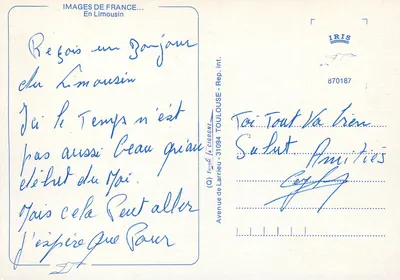 IMAGES DE FRANCE...
En Limousin
Reçois un Bonjour
du Limousin
Ici le Temps n'est
pas aussi beau qu'au
début du Moi.
Mais cela Peut aller
j'espère que Pour
Avenue de Larrieu - 31094 TOULOUSE - Rep. int.
IRIS
870187
Toi Tout Va bien
Salut Amitiés